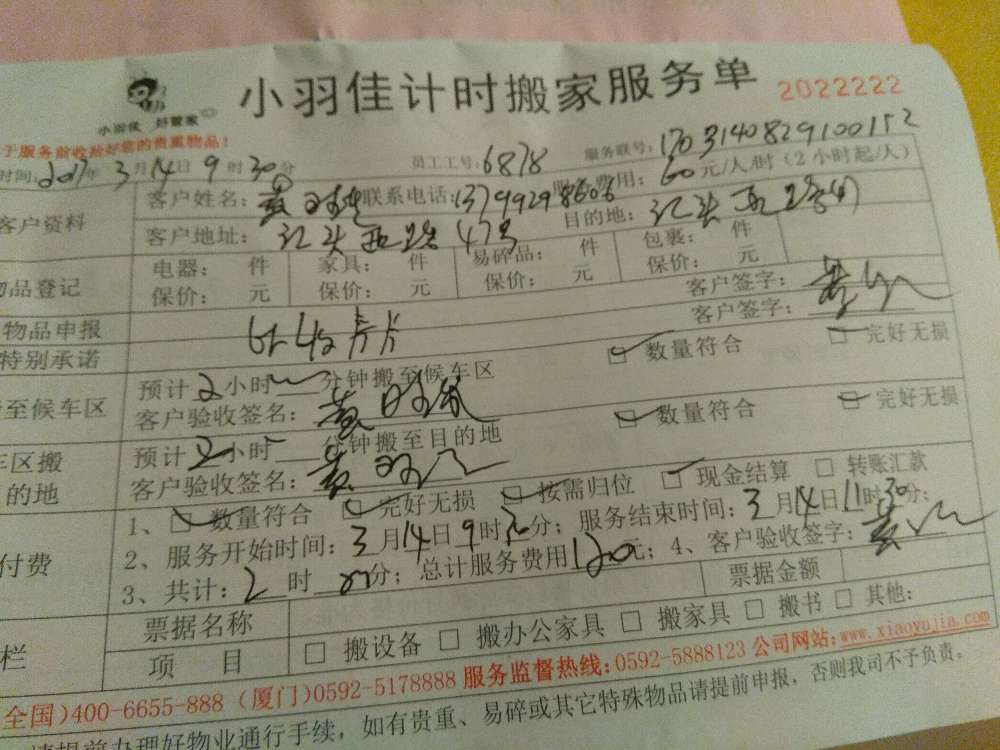 小羽佳计时搬家服务单 2022222
小羽佳 好管家
于服务前收拾好您的贵重物品!
时间: 2017年3月14日9时30分 员工工号: 6878 服务联号: 1703140829100152
客户资料 客户姓名: 黄 联系电话: 13799298606 服务费用: 60元/人/时(2小时起/人)
客户地址: 江头西路47号 目的地: 江头西路
物品登记 电器: 件 家具: 件 易碎品: 件 包裹: 件
保价: 元 保价: 元 保价: 元 保价: 元
物品申报 客户签字:
特别承诺 客户签字: 黄
至候车区 预计2小时 分钟搬至候车区 数量符合 完好无损
客户验收签名: 黄
车区搬 预计2小时 分钟搬至目的地 数量符合 完好无损
的地 客户验收签名: 黄
付费 1、数量符合 完好无损 按需归位 现金结算 转账汇款
2、服务开始时间: 3月14日9时30分; 服务结束时间: 3月14日11时30分;
3、共计: 2时 分; 总计服务费用120元; 4、客户验收签字: 黄
栏 票据名称 票据金额
项 目 搬设备 搬办公家具 搬家具 搬书 其他:
全国)400-6655-888 (厦门)0592-5178888 服务监督热线:0592-5888123 公司网站:www.xiaoyujia.com
请提前办理好物业通行手续, 如有贵重、易碎或其它特殊物品请提前申报, 否则我司不予负责。